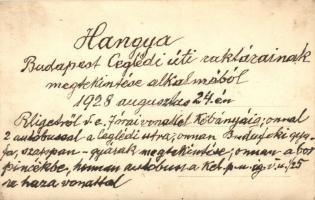 Hangya
Budapest Ceglédi úti raktárainak
megtekintése alkalmából
1928 augusztus 24.én
d.e. vonattal Kőbányáig; onnan
2 autobussal a Ceglédi utra; onnan
szappan - gyárak megtekintése; onnan a bor
pincékbe, honnan autobuson a Kel. p.u.ig v.u. 1/25
haza vonattal